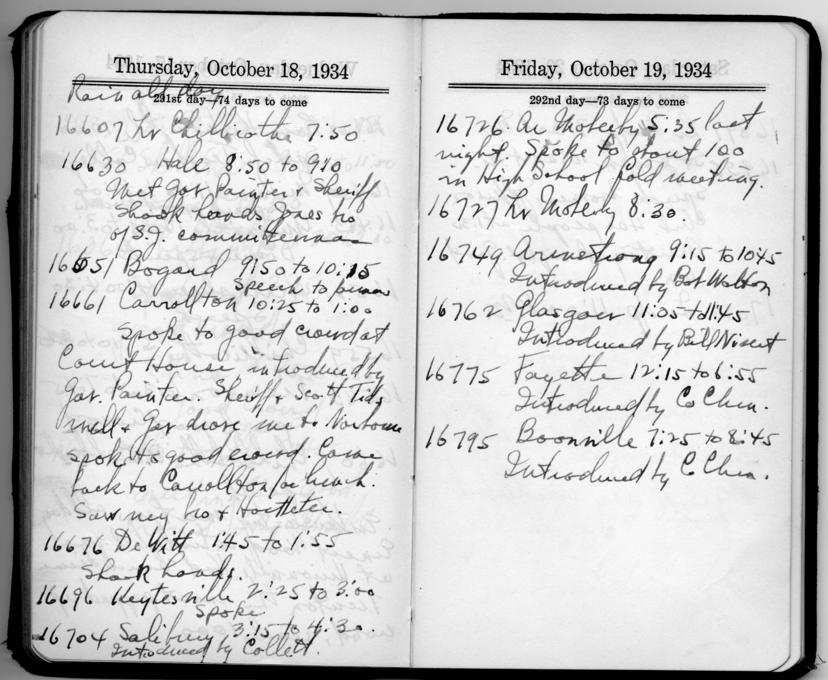 Thursday, October 18, 1934
Rain all day
291st day—74 days to come
16607 Lv Chillicothe 7:50
16630 Hale 8:50 to 9:10
Met Gov. Painter & Sheriff
Shook hands Jones no
of S.J. committeeman
16651 Bogard 9:50 to 10:15
Speech to
16661 Carrollton 10:25 to 1:00
Spoke to good crowd at
Court House introduced by
Gov. Painter. Sheriff & Scott Tids
well & Gov drove me to Norborne
spoke to good crowd. Came
back to Carrollton for lunch.
Saw ney no & Hostteter.
16676 DeWitt 1:45 to 1:55
Shook hands.
16696 Keytesville 2:25 to 3:00
Spoke
16704 Salibury 3:15 to 4:30.
Introduced by Collett.
Friday, October 19, 1934
292nd day—73 days to come
16726 Ar Moberly 5:35 last
night. Spoke to about 100
in High School fold meeting.
16727 Lv Moberly 8:30.
16749 Armstrong 9:15 to 10:45
Introduced by Bob Walton
16762 Glasgow 11:05 to 11:45
Introduced by Bill
16775 Fayette 12:15 to 6:55
Introduced by Co Chm.
16795 Boonville 7:25 to 8:45
Introduced by Co Chm.